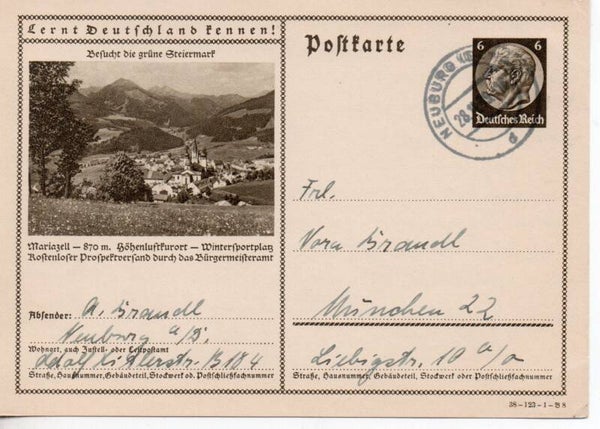 Lernt Deutschland kennen!
Besucht die grüne Steiermark
Mariazell – 870 m. Höhenluftkurort – Wintersportplatz
Kostenloser Prospektversand durch das Bürgermeisteramt
Absender: A. Brandl
Neuburg a/D.
Wohnort, auch Zustell- oder Leitpostamt
Adolf Hitlerstr. B 184
Straße, Hausnummer, Gebäudeteil, Stockwerk od. Postschließfachnummer
Postkarte
NEUBURG
d
6 6
Deutsches Reich
Frl.
Vera Brandl
München 22
Liebigstr. 10 a/o
Straße, Hausnummer, Gebäudeteil, Stockwerk oder Postschließfachnummer
38-123-1-B8